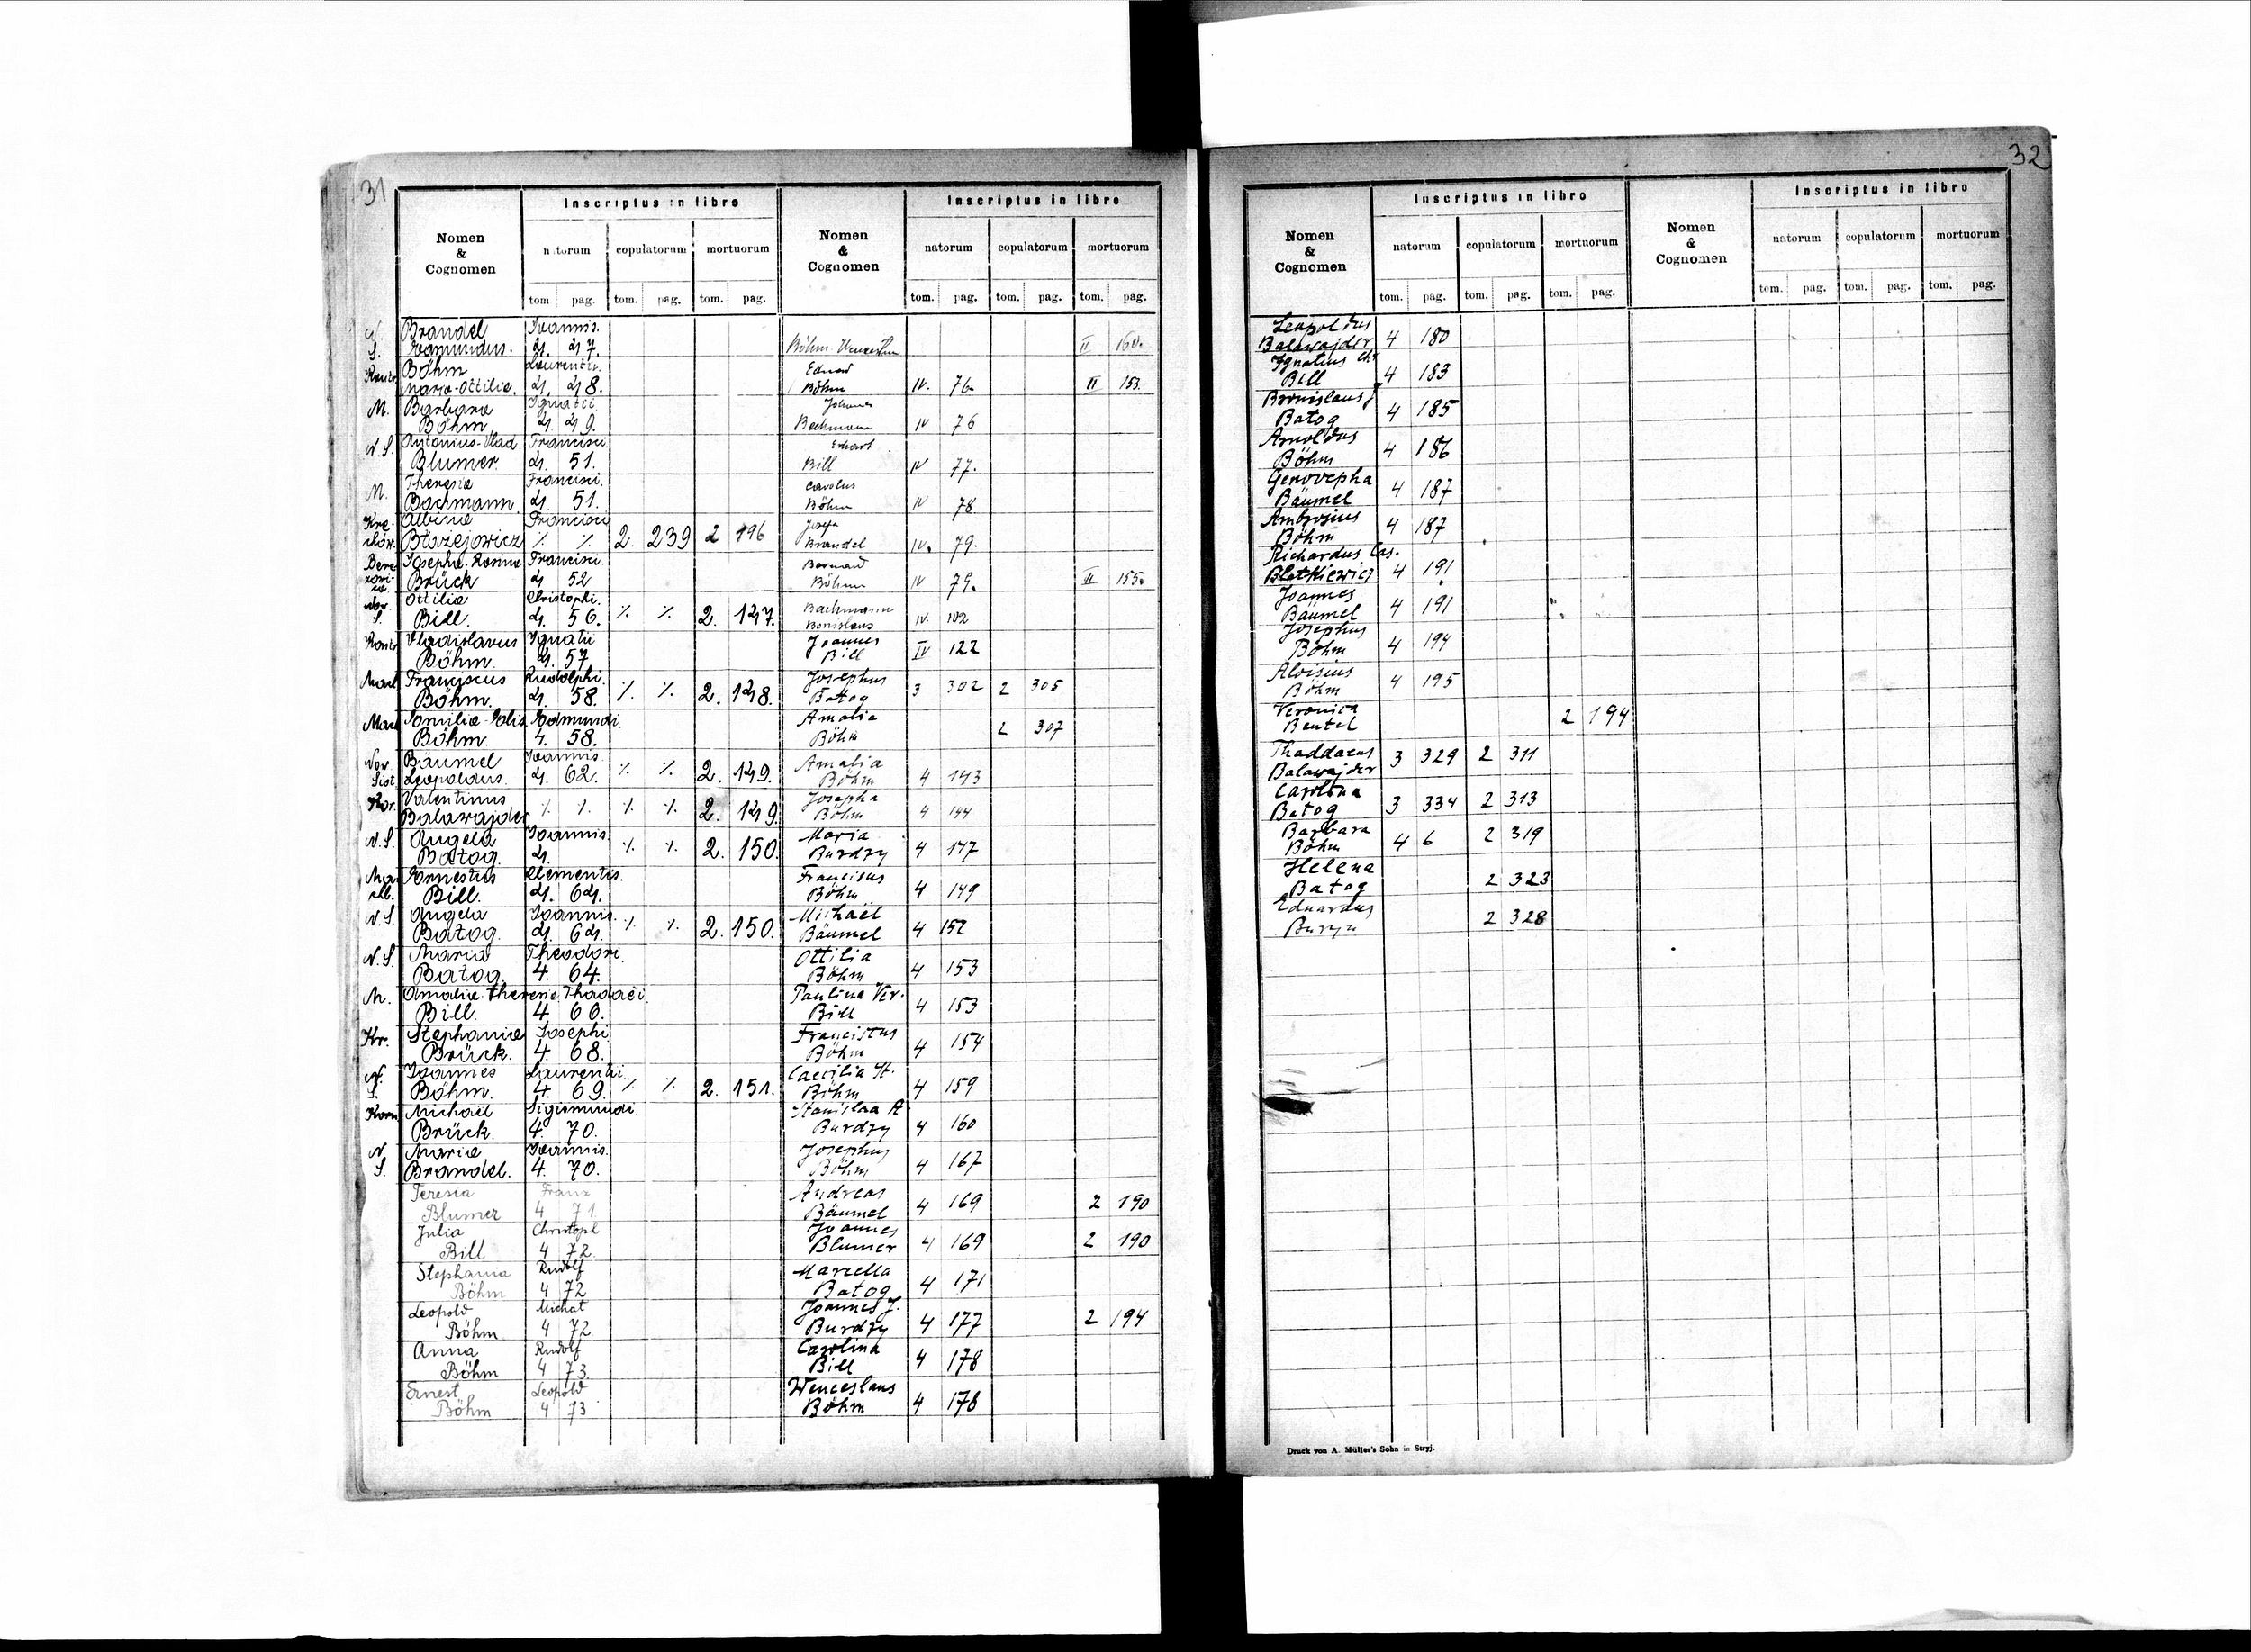 31
Nomen & Cognomen
Inscriptus in libro
natorum copulatorum mortuorum
tom pag. tom. pag. tom. pag.
N. S. Brandel Joannis.
Edmundus. 4. 47.
Böhm Laurentii.
Maria-Ottilia. 4. 48.
M. Barbara Ignatii
Böhm 4. 49.
N. S. Antonius-Vlad. Francisci
Blumer. 4. 51.
M. Theresia Francisci.
Bachmann. 4. 51.
Albina Francisci
Błażejowicz ⁒ ⁒ 2. 239 2 196
Josepha-Rosina Francisci.
Brück 4 52
Ottilia Christophi.
S. Bill. 4. 56. ⁒ ⁒ 2. 147.
Vladislavus Ignatii
Böhm. 4. 57
Franciscus Rudolphi.
Böhm. 4. 58. ⁒ ⁒ 2. 148.
Emilia-Elis. Edmundi
Böhm. 4. 58.
Bäumel Joannis.
Leopoldus. 4. 62. ⁒ ⁒ 2. 149.
Valentinus
Balawajder ⁒ ⁒ ⁒ ⁒ 2. 149.
N. S. Angela Joannis.
Batog. 4. ⁒ ⁒ 2. 150.
Ernestus Clementis.
Bill. 4. 64.
N. S. Angela Joannis.
Batog. 4. 64. ⁒ ⁒ 2. 150.
N. S. Maria Theodori.
Batog. 4. 64.
M. Amalia-Theresia Thadaei
Bill. 4 66.
Kr. Stephania Josephi
Brück. 4. 68.
N. Joannes Laurentii.
S. Böhm. 4. 69. ⁒ ⁒ 2. 151.
Korn Michael Sigismundi
Brück. 4. 70.
N. Maria Joannis.
S. Brandel. 4. 70.
Teresia Franz
Blumer 4 71.
Julia Christoph
Bill 4 72.
Stephania Rudolf
Böhm 4 72
Leopold Michał
Böhm 4 72
Anna Rudolf
Böhm 4 73.
Ernest Leopold
Böhm 4 73
Nomen & Cognomen
Inscriptus in libro
natorum copulatorum mortuorum
tom. pag. tom. pag. tom. pag.
Böhm II 160.
Eduard
Böhm IV. 76. II 153.
Johannes
Bachmann IV 76
Erhart
Bill IV 77.
Carolus
Böhm IV 78
Josefa
Brandel IV. 79.
Bernard
Böhm IV 79. III 155.
Bachmann
Bronislaus IV. 102
Joannes
Bill IV 122
Josephus
Batog 3 302 2 305
Amalia
Böhm 2 307
Amalia
Böhm 4 143
Josepha
Böhm 4 144
Maria
Burdzy 4 147
Franciscus
Böhm 4 149
Michael
Bäumel 4 152
Ottilia
Böhm 4 153
Paulina Ver.
Bill 4 153
Franciscus
Böhm 4 154
Caecilia St.
Böhm 4 159
Stanislaa A.
Burdzy 4 160
Josephus
Böhm 4 167
Andreas
Bäumel 4 169 2 190
Joannes
Blumer 4 169 2 190
Marcella
Batog 4 171
Joannes J.
Burdzy 4 177 2 194
Carolina
Bill 4 178
Wenceslaus
Böhm 4 178
32
Nomen & Cognomen
Inscriptus in libro
natorum copulatorum mortuorum
tom. pag. tom. pag. tom. pag.
Leopoldus
Balawajder 4 180
Ignatius Chr.
Bill 4 183
Bronislaus J.
Batog 4 185
Arnoldus
Böhm 4 186
Genovepha
Bäumel 4 187
Ambrosius
Böhm 4 187
Richardus Cas.
Blatkiewicz 4 191
Joannes
Bäumel 4 191
Josephus
Böhm 4 194
Aloisius
Böhm 4 195
Veronica
Beutel 2 194
Thaddaeus
Balawajder 3 329 2 311
Carolina
Batog 3 334 2 313
Barbara
Böhm 4 6 2 319
Helena
Batog 2 323
Eduardus
2 328
Nomen & Cognomen
Inscriptus in libro
natorum copulatorum mortuorum
tom. pag. tom. pag. tom. pag.
Druck von A. Müller's Sohn in Stryj.